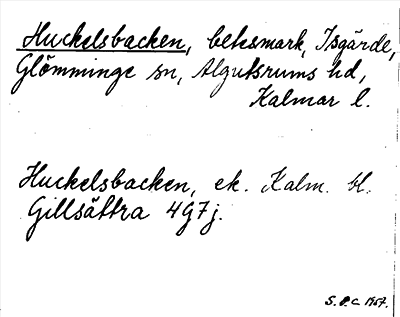 Huckelsbacken, betesmark, Isgärde,
Glömminge sn, Algutsrums hd,
Kalmar l.
Huckelsbacken, ek. Kalm. bl.
Gillsättra 4G7j.
S.P.C. 1957.